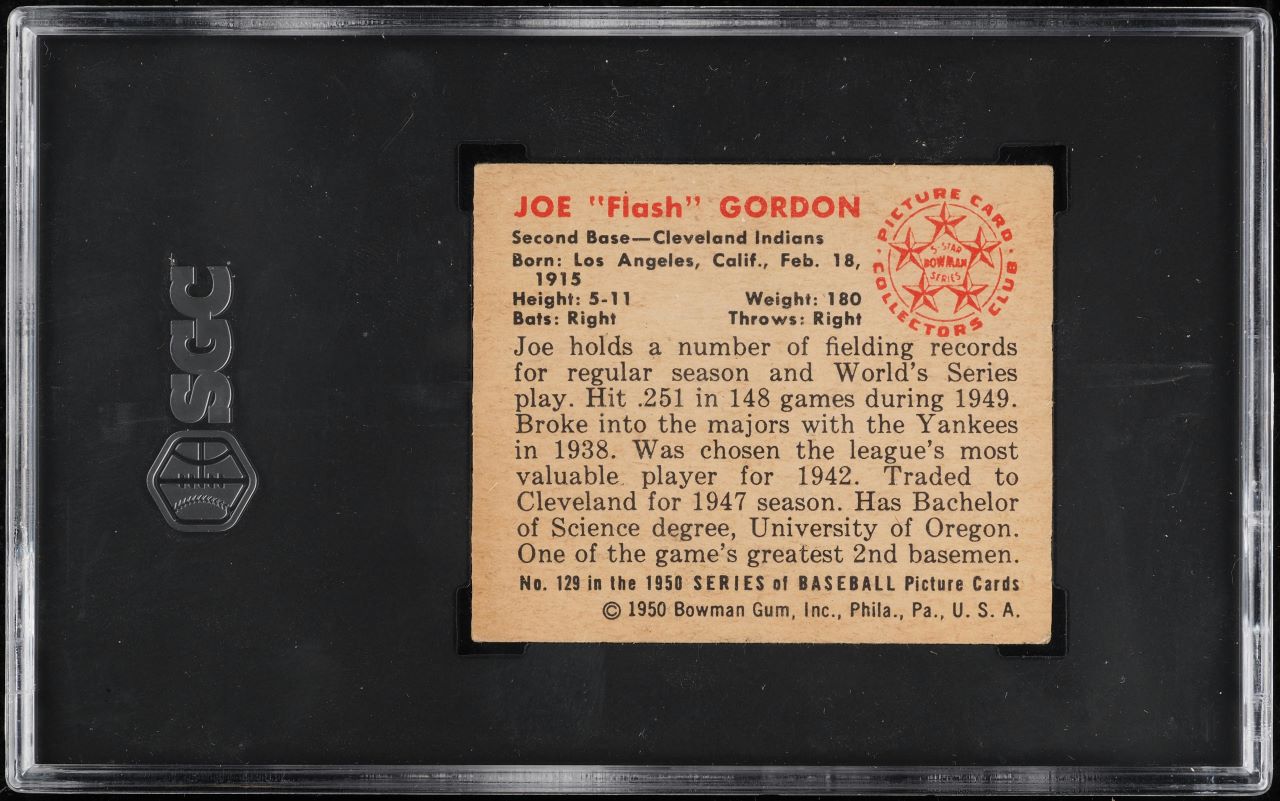 JOE "Flash" GORDON
Second Base—Cleveland Indians
Born: Los Angeles, Calif., Feb. 18,
1915
Height: 5-11 Weight: 180
Bats: Right Throws: Right
PICTURE CARD
COLLECTORS CLUB
5-STAR
BOWMAN
SERIES
Joe holds a number of fielding records
for regular season and World's Series
play. Hit .251 in 148 games during 1949.
Broke into the majors with the Yankees
in 1938. Was chosen the league's most
valuable player for 1942. Traded to
Cleveland for 1947 season. Has Bachelor
of Science degree, University of Oregon.
One of the game's greatest 2nd basemen.
No. 129 in the 1950 SERIES of BASEBALL Picture Cards
© 1950 Bowman Gum, Inc., Phila., Pa., U. S. A.
SGC